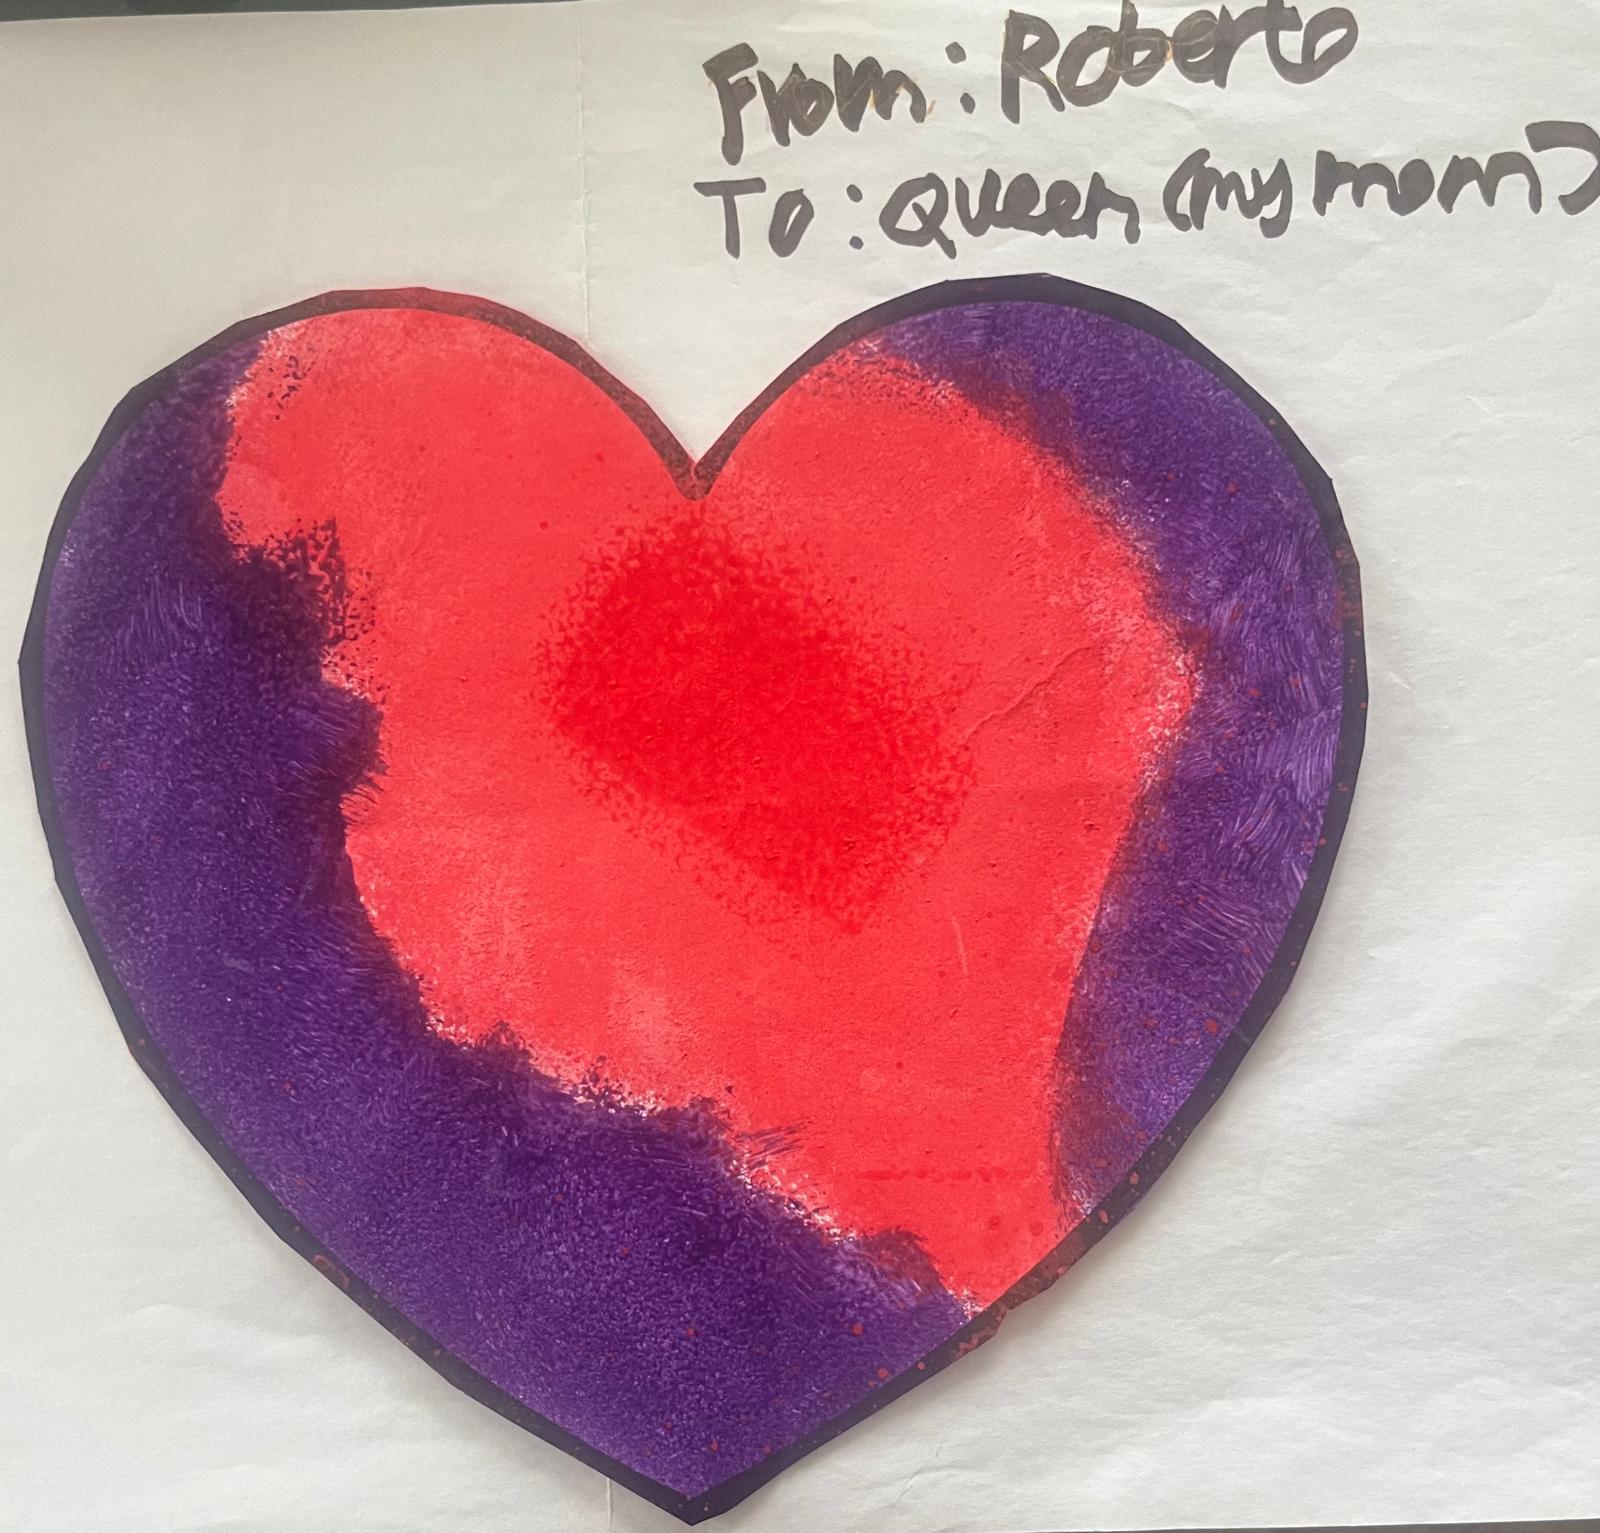 From: Roberto
To: Queen (my mom)